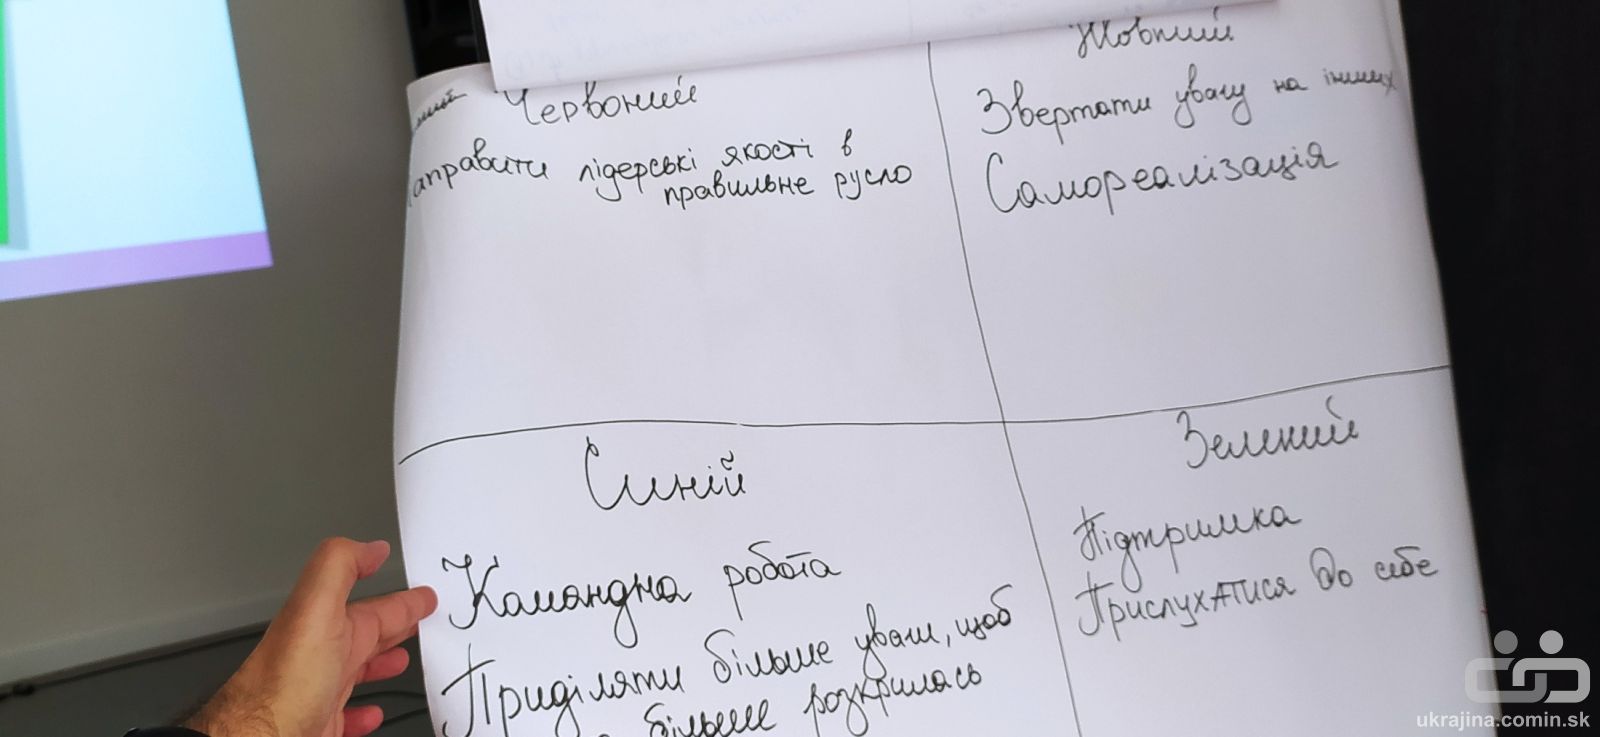 Червоний
Направити лідерські якості в
правильне русло
Жовтий
Звертати увагу на інших
Самореалізація
Синій
Командна робота
Приділяти більше уваги, щоб
більше розкрилась
Зелений
Підтримка
Прислухатися до себе
ukrajina.comin.sk